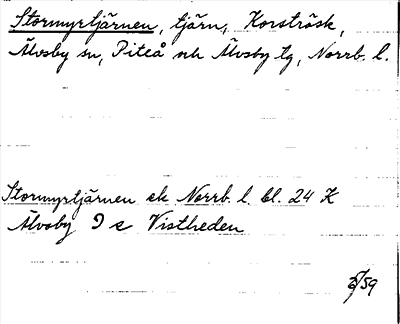 Stormyrtjärnen, tjärn, Korsträsk,
Älvsby sn, Piteå och Älvsby tg, Norrb. l.
Stormyrtjärnen ek Norrb. l. bl. 24 K
Älvsby 9 c Vistheden
/59